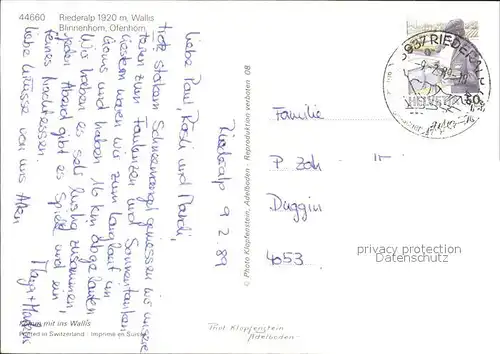 44660
Riederalp 1920 m, Wallis
Blinnenhorn, Ofenhorn
Riederalp 9.2.89
Liebe Paul, Rösli und Mandi,
trotz starkem Schneemangel geniessen wir unsere
Ferien zum Faulenzen und Sonnentanken
Gestern waren wir zum Langlauf im
Goms und haben 16 km abgelaufen
Wir haben es sehr lustig zusammen,
jeden Abend gibt es Spiele und ein
feines Nachtessen.
Liebe Grüsse von uns Allen
mit ins Wallis
Printed in Switzerland - Imprimé en Suisse
© Photo Klopfenstein, Adelboden - Reproduktion verboten 08
3987 RIEDERALP
HELVETIA
Familie
P
Duggin
4053
privacy protection
Datenschutz
Phot Klopfenstein
Adelboden